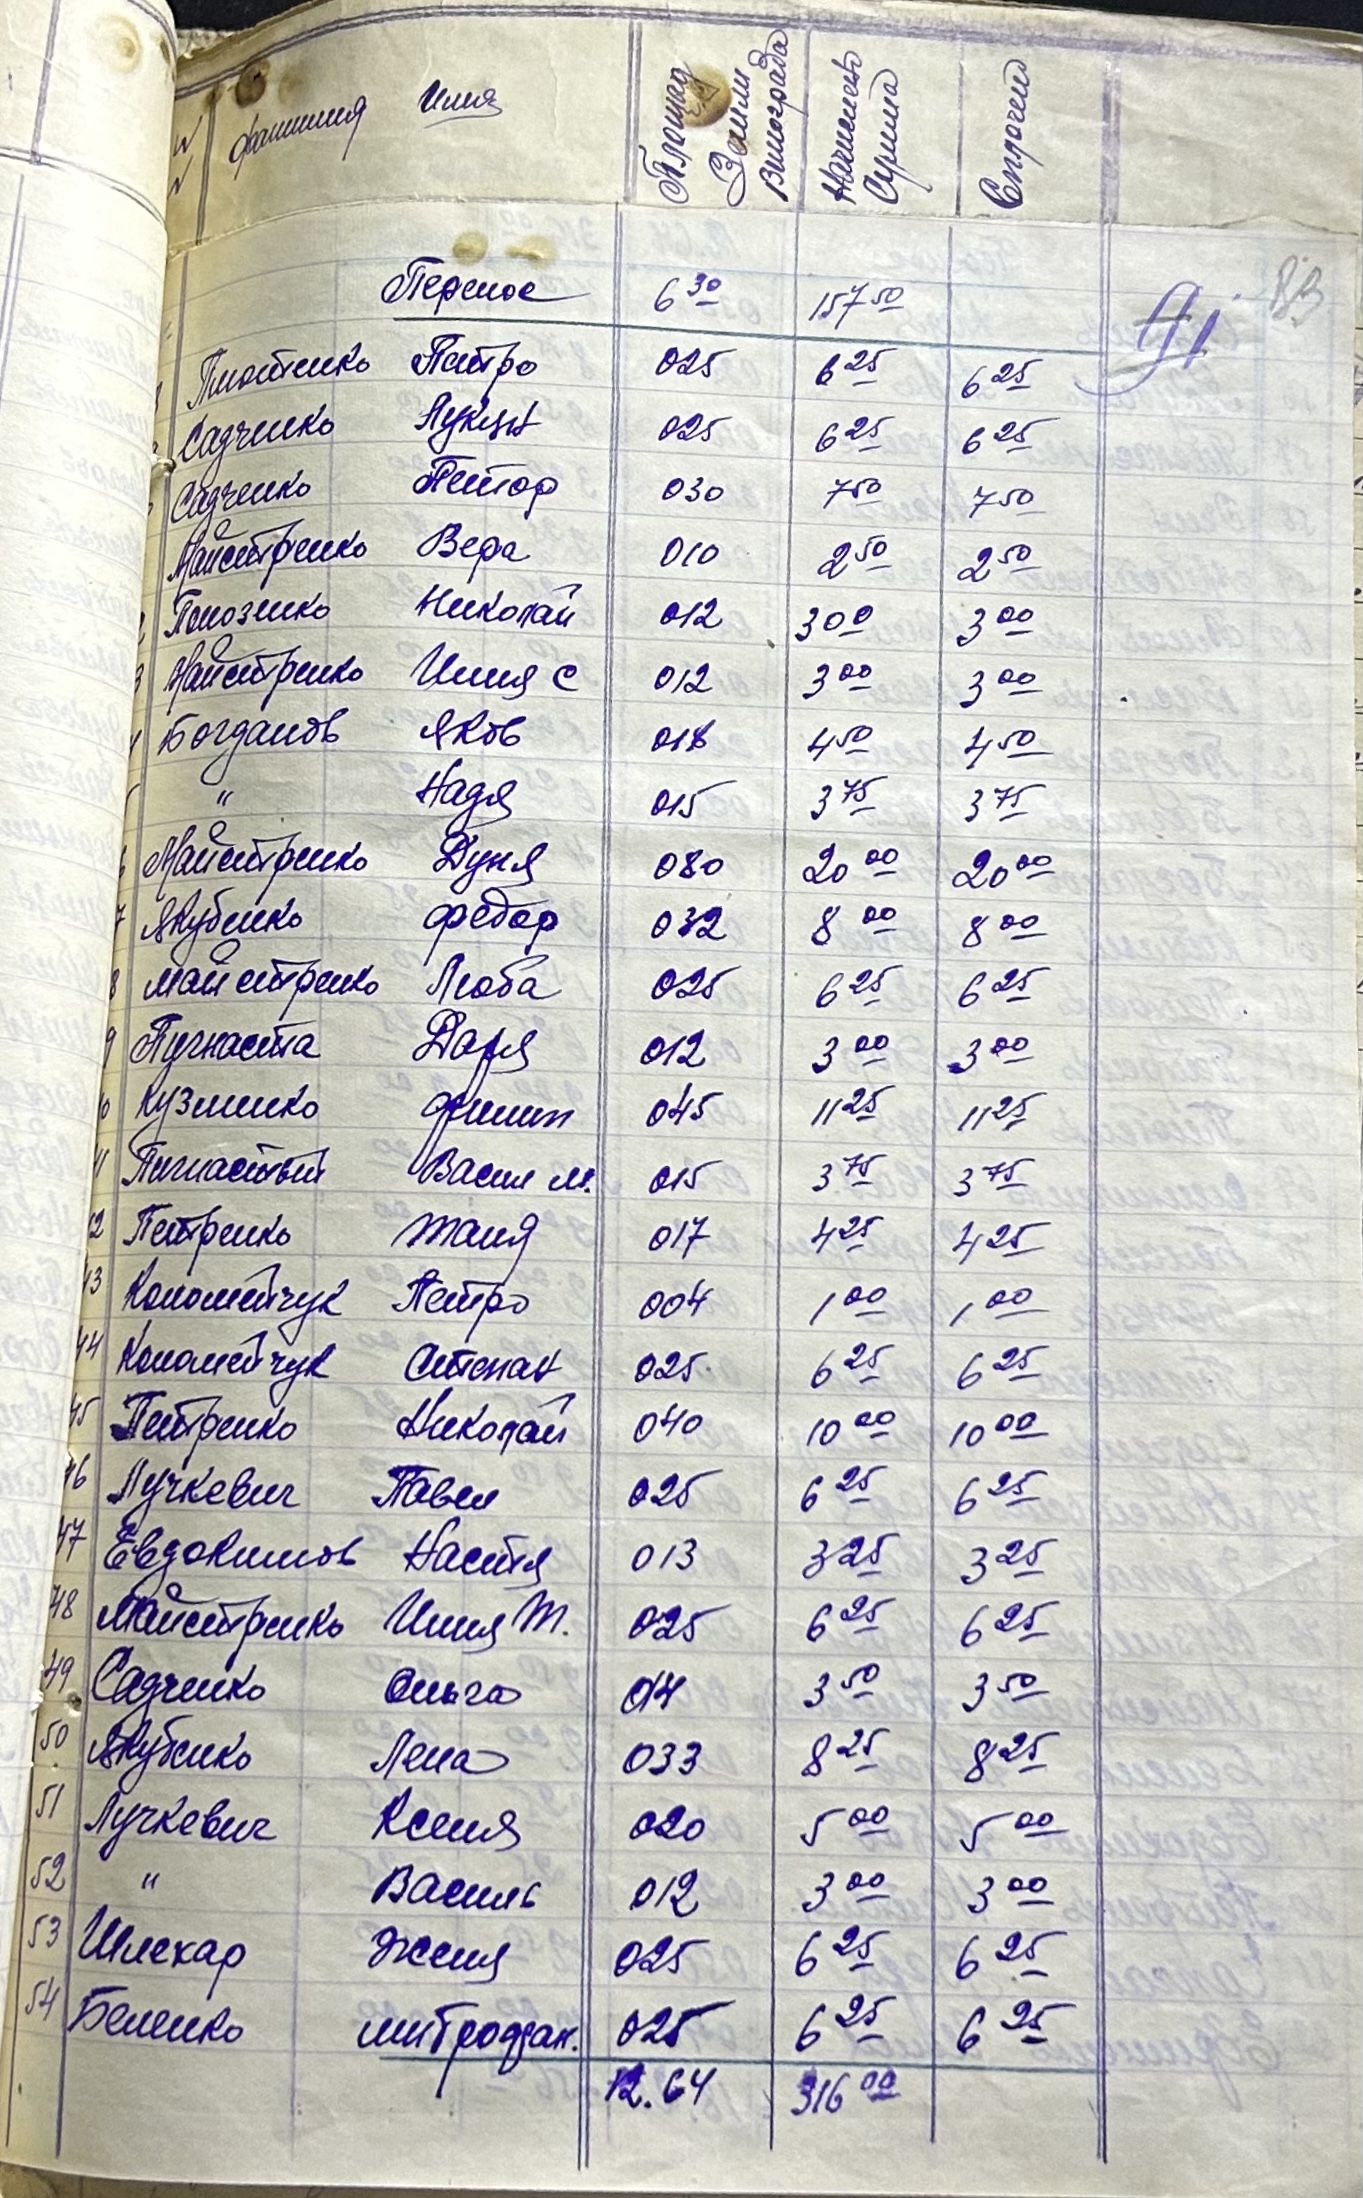 N фамилия Имя Площад Земли Винограда Начислено Сумма Сплочено
Перенос 6 30 157 50
91
Плютенко Петро 025 6 25 6 25
Садченко Лукцн 025 6 25 6 25
Садченко Петор 030 7 50 7 50
Майстренко Вера 010 2 50 2 50
Полозенко Николай 012 3 00 3 00
Майстренко Илия С 012 3 00 3 00
Богданов Яков 018 4 50 4 50
" Надя 015 3 75 3 75
6 Майстренко Дуня 080 20 00 20 00
7 Якубенко федор 032 8 00 8 00
8 Майстренко Люба 025 6 25 6 25
9 Пугнаста Даря 012 3 00 3 00
10 Кузменко филип 045 11 25 11 25
41 Пигнастый Васил М. 015 3 75 3 75
42 Петренко Таня 017 4 25 4 25
43 Коломейчук Петро 004 1 00 1 00
44 Коломейчук Степан 025 6 25 6 25
45 Петренко Николай 040 10 00 10 00
46 Лучкевич Павел 025 6 25 6 25
47 Евдокимов Настя 013 3 25 3 25
48 Майстренко Илия Т. 025 6 25 6 25
49 Садченко Ольга 014 3 50 3 50
50 Якубенко Лена 033 8 25 8 25
51 Лучкевич Ксеня 020 5 00 5 00
52 " Василь 012 3 00 3 00
53 Шлехар Женя 025 6 25 6 25
54 Беленко митрофан. 025 6 25 6 25
12.64 316 00